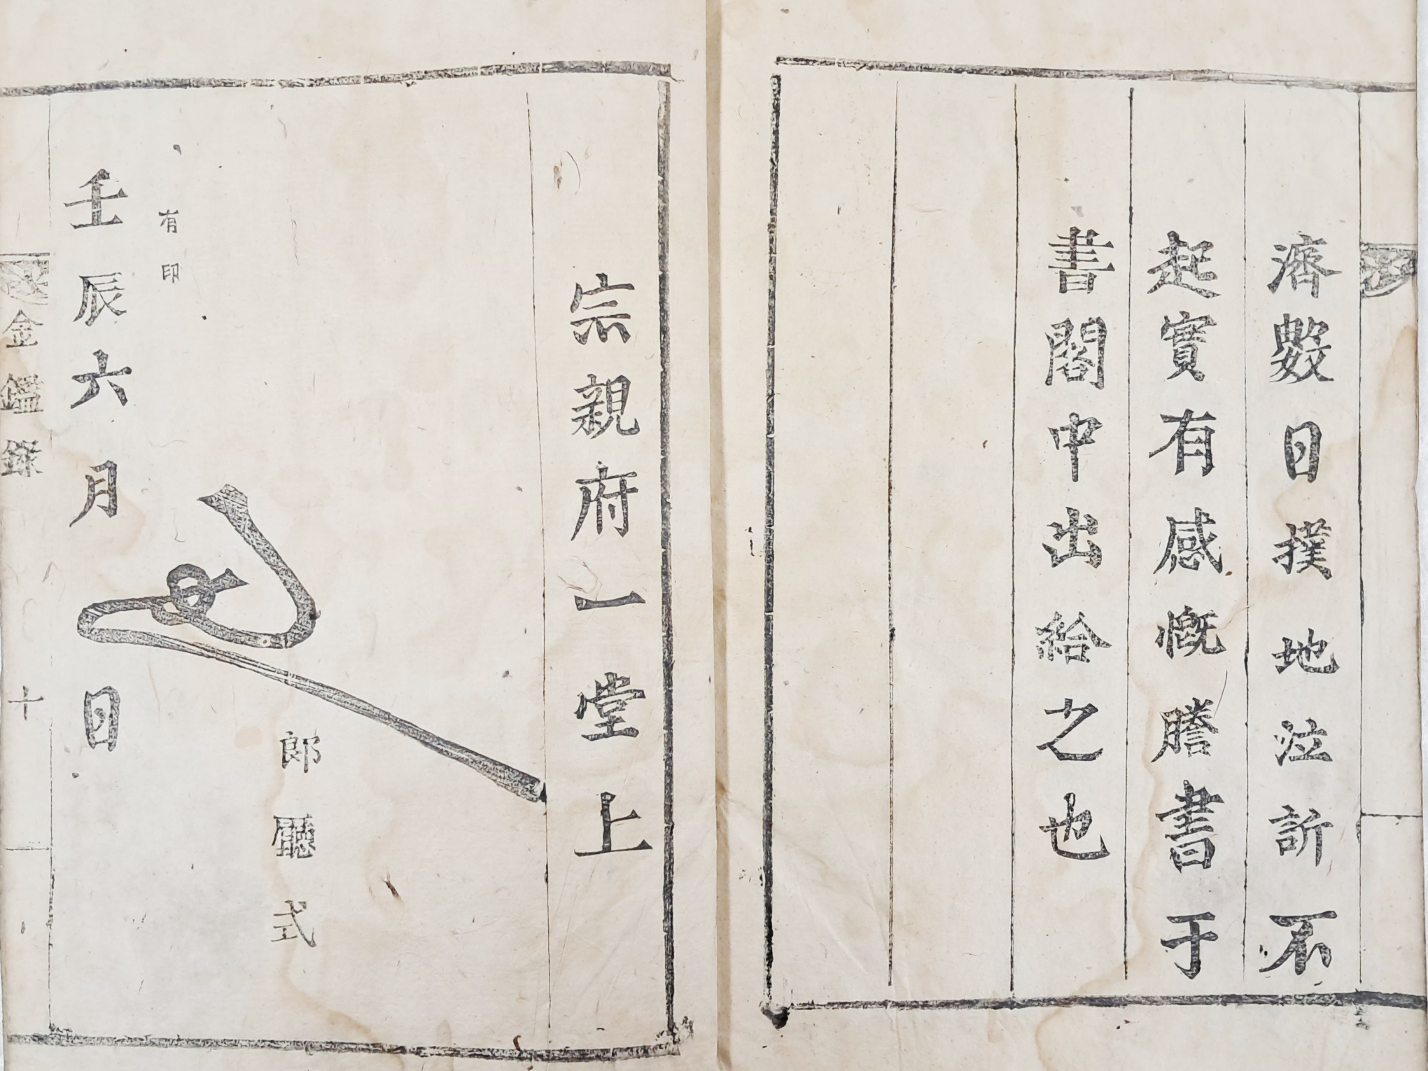 濟數日撲地泣訴不
起實有感慨謄書于
書閣中出給之也
宗親府一堂上
郞廳式
有印
壬辰六月日
金鑑錄
十